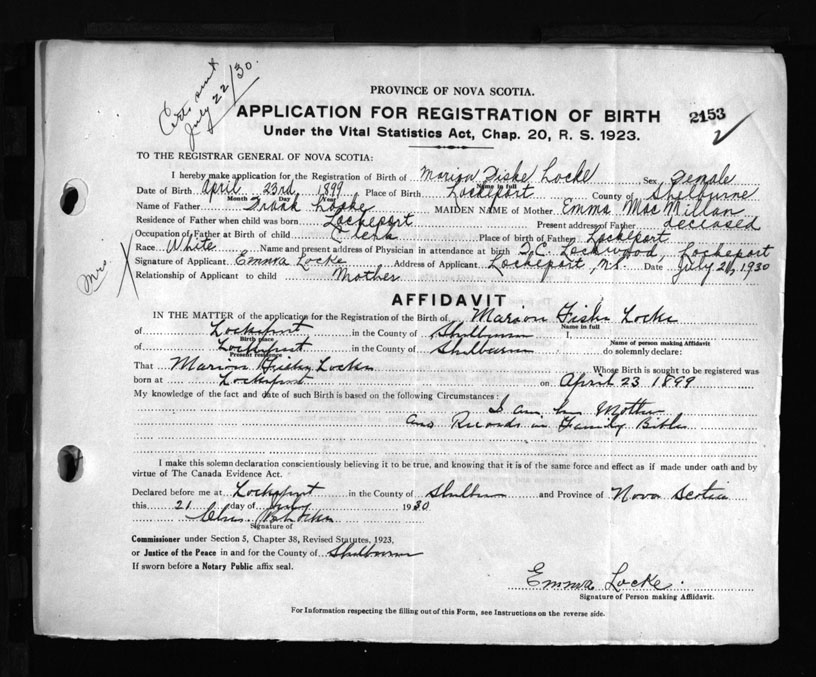 Certs sent
July 22/30.
PROVINCE OF NOVA SCOTIA.
APPLICATION FOR REGISTRATION OF BIRTH
2153
Under the Vital Statistics Act, Chap. 20, R. S. 1923.
TO THE REGISTRAR GENERAL OF NOVA SCOTIA:
I hereby make application for the Registration of Birth of Marion Fiske Locke Sex Female
Name in full
Date of Birth April 23rd, 1899 Place of Birth Lockeport County of Shelburne
Month Day Year
Name of Father Frank Locke MAIDEN NAME of Mother Emma MacMillan
Residence of Father when child was born Lockeport Present address of Father deceased
Occupation of Father at Birth of child Clerk Place of birth of Father Lockeport
Race White Name and present address of Physician in attendance at birth Lockwood, Lockeport
Signature of Applicant Emma Locke Address of Applicant Lockeport, N.S. Date July 21, 1930
Relationship of Applicant to child Mother
Mrs. X
AFFIDAVIT
IN THE MATTER of the application for the Registration of the Birth of Marion Fiske Locke
Name in full
of Lockeport in the County of Shelburne I,
Birth place
Name of person making Affidavit
of Lockeport in the County of Shelburne do solemnly declare:
Present residence
That Marion Fiske Locke Whose Birth is sought to be registered was
born at Lockeport on April 23 1899
My knowledge of the fact and date of such Birth is based on the following Circumstances:
I am her Mother
and Records in Family Bible
I make this solemn declaration conscientiously believing it to be true, and knowing that it is of the same force and effect as if made under oath and by
virtue of The Canada Evidence Act.
Declared before me at Lockeport in the County of Shelburne and Province of Nova Scotia
this 21 day of July 1930
Signature of
Commissioner under Section 5, Chapter 38, Revised Statutes, 1923,
or Justice of the Peace in and for the County of Shelburne
If sworn before a Notary Public affix seal.
Emma Locke.
Signature of Person making Affidavit.
For Information respecting the filling out of this Form, see Instructions on the reverse side.